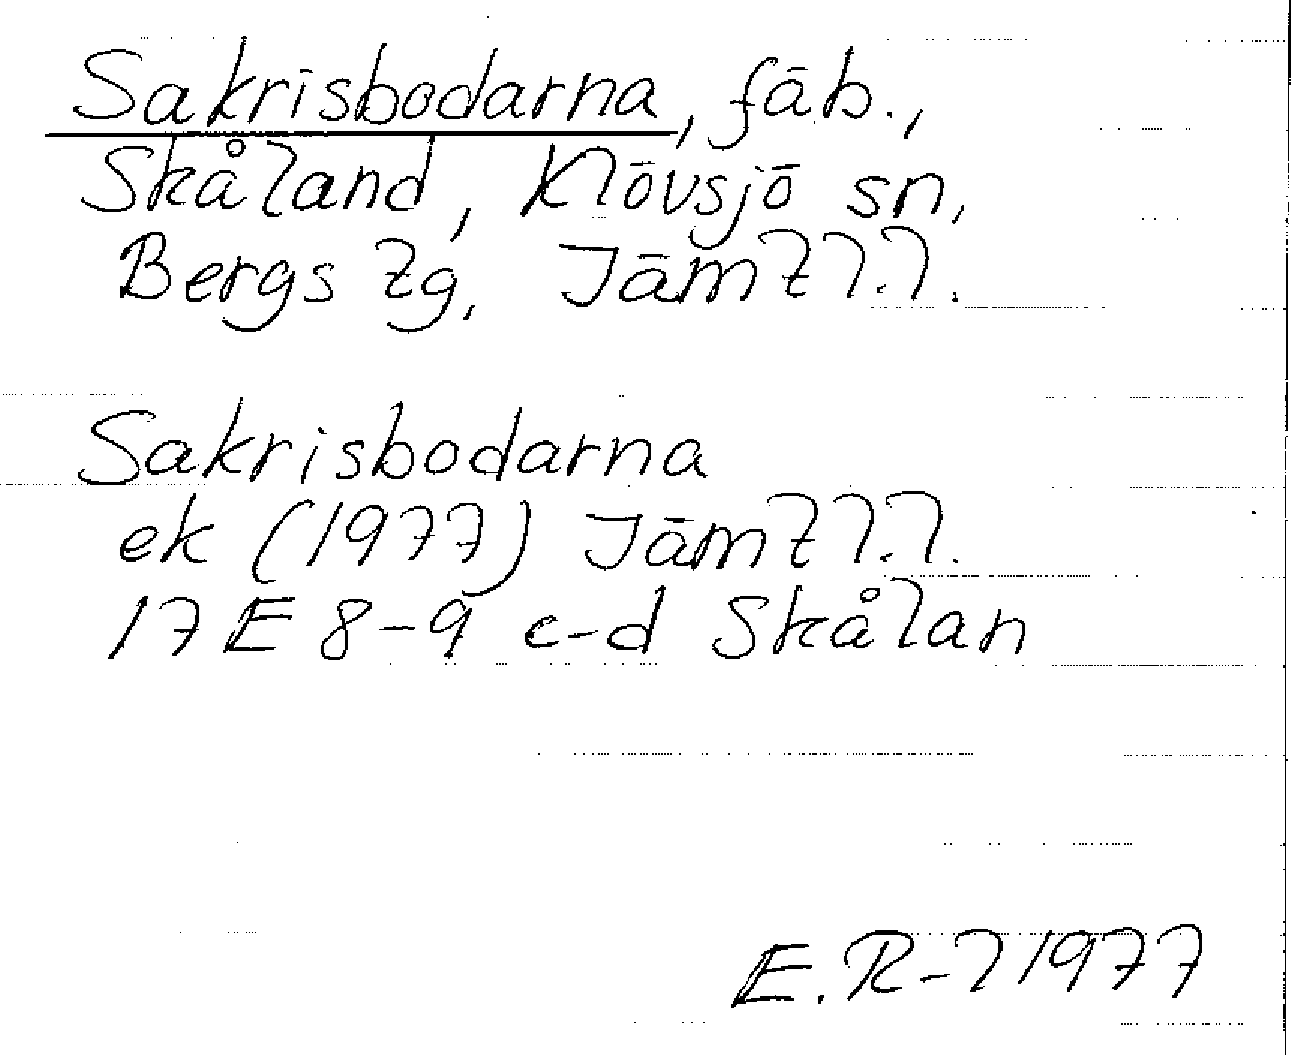 Sakrisbodarna, fäb.,
Skåland, Klövsjö sn,
Bergs tg, Jämtl.l.
Sakrisbodarna
ek (1977) Jämtl.l.
17E 8-9 c-d Skålan
E.R-l 1977